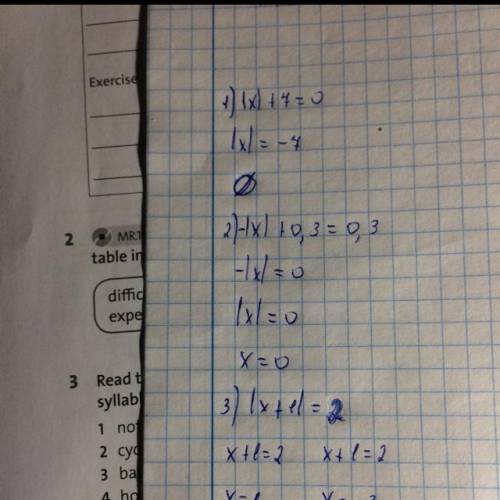 Exercise
2 MR1
table in
diffic
expe
3 Read t
syllab
1 not
2 cyc
3 ba
4 ho
1) |x| + 7 = 0
|x| = -7
∅
2) -|x| + 0,3 = 0,3
-|x| = 0
|x| = 0
x = 0
3) |x + 1| = 2
x + 1 = 2 x + 1 = 2